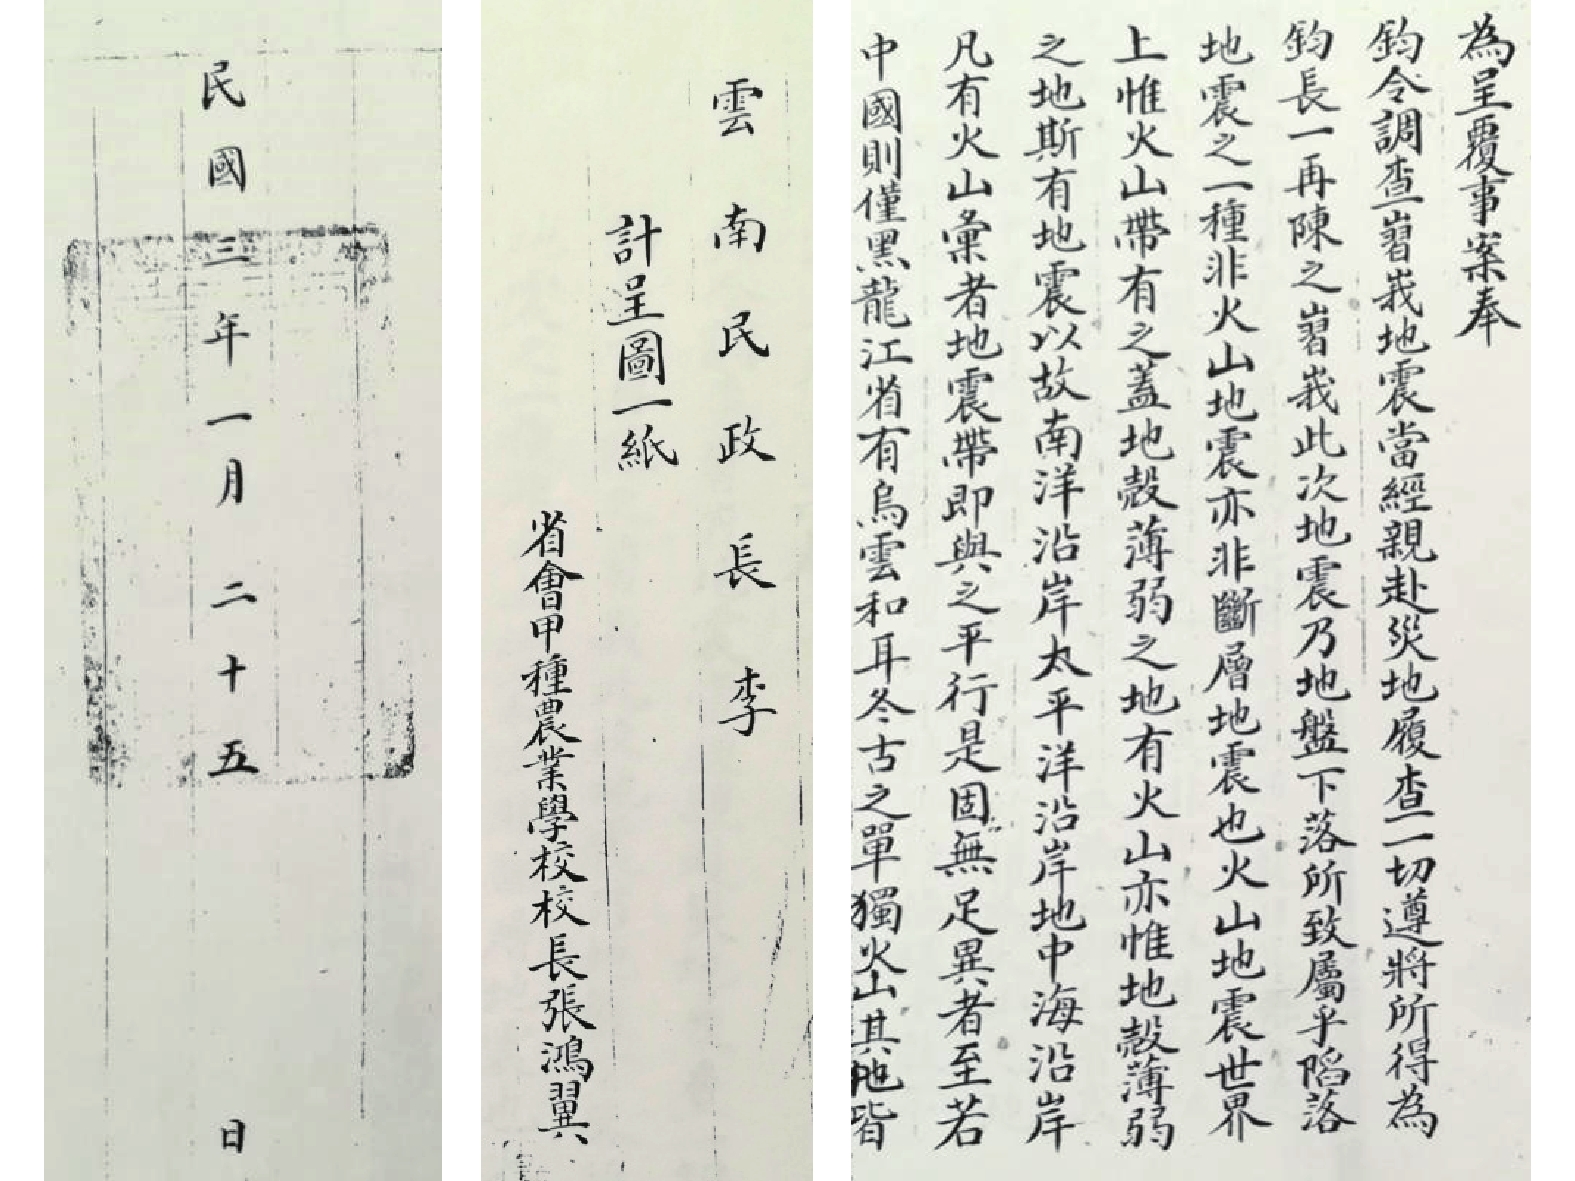 為呈覆事案奉
鈞令調查嶍峩地震當經親赴災地履查一切遵將所得為
鈞長一再陳之嶍峩此次地震乃地盤下落所致屬乎陷落
地震之一種非火山地震亦非斷層地震也火山地震世界
上惟火山帶有之蓋地殼薄弱之地有火山亦惟地殼薄弱
之地斯有地震以故南洋沿岸太平洋沿岸地中海沿岸
凡有火山彙者地震帶即與之平行是固無足異者至若
中國則僅黑龍江省有烏雲和耳冬古之單獨火山其他皆
雲南民政長李
計呈圖一紙
省會甲種農業學校校長張鴻翼
民國三年一月二十五日